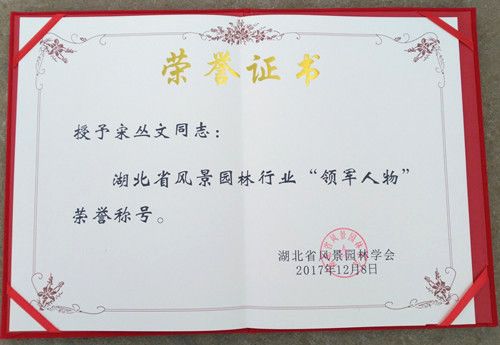 荣誉证书
授予宋丛文同志：
湖北省风景园林行业“领军人物”
荣誉称号。
湖北省风景园林学会
2017年12月8日